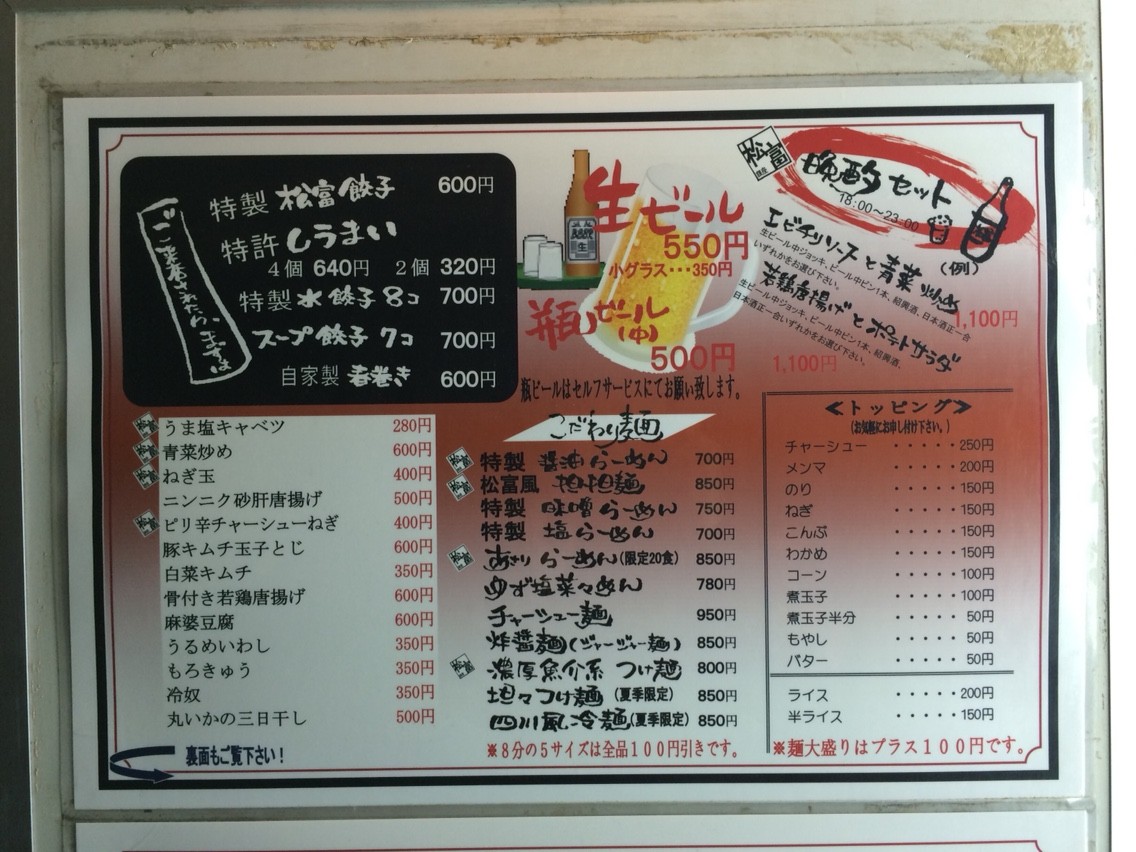 ご来席されたら、まずは
特製 松富餃子 600円
特許 しうまい
4個 640円 2個 320円
特製 水餃子8コ 700円
スープ餃子 7コ 700円
自家製 春巻き 600円
うま塩キャベツ 280円
青菜炒め 400円
ねぎ玉 400円
ニンニク砂肝唐揚げ 500円
ピリ辛チャーシューねぎ 400円
豚キムチ玉子とじ 600円
白菜キムチ 350円
骨付き若鶏唐揚げ 600円
麻婆豆腐 600円
うるめいわし 350円
もろきゅう 350円
冷奴 350円
丸いかの三日干し 500円
裏面もご覧下さい!
生ビール
550円
小グラス・・・350円
瓶ビール
(中)
500円
瓶ビールはセルフサービスにてお願い致します。
こだわり麺
特製 醤油らーめん 700円
松富風 担担麺 850円
特製 味噌らーめん 750円
特製 塩らーめん 700円
あさりらーめん(限定20食) 850円
ゆず塩菜々めん 780円
チャーシュー麺 950円
炸醤麺(ジャージャー麺) 850円
濃厚魚介系 つけ麺 800円
坦々つけ麺 (夏季限定) 850円
四川風冷麺(夏季限定) 850円
※8分の5サイズは全品100円引きです。
松富
晩酌セット
18:00〜23:00
(例)
エビチリソースと青菜炒め
生ビール中ジョッキ、ビール中ビン1本、紹興酒、日本酒正一合
いずれかをお選び下さい。
1,100円
若鶏唐揚げとポテトサラダ
生ビール中ジョッキ、ビール中ビン1本、紹興酒、
日本酒正一合いずれかをお選び下さい。
1,100円
≪トッピング≫
(お気軽にお申し付け下さい。)
チャーシュー ・・・・・250円
メンマ ・・・・・200円
のり ・・・・・150円
ねぎ ・・・・・150円
こんぶ ・・・・・150円
わかめ ・・・・・150円
コーン ・・・・・100円
煮玉子 ・・・・・100円
煮玉子半分 ・・・・・50円
もやし ・・・・・50円
バター ・・・・・50円
ライス ・・・・・200円
半ライス ・・・・・150円
※麺大盛りはプラス100円です。